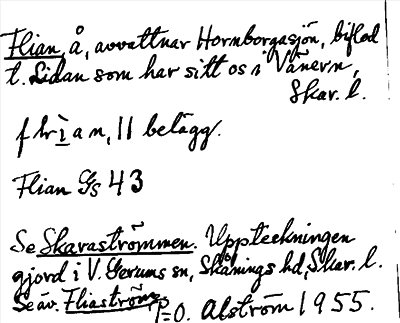 Flian, å, avvattnar Hornborgasjön, biflod
t. Lidan som har sitt os i Vänern,
Skar. l.
flìan, || belägg.
Flian Gs 43
Se Skaraströmmen. Uppteckningen
gjord i V. Gerums sn, Skånings hd, Skar. l.
Se äv. Fliaström
P-O. Alström 1955.